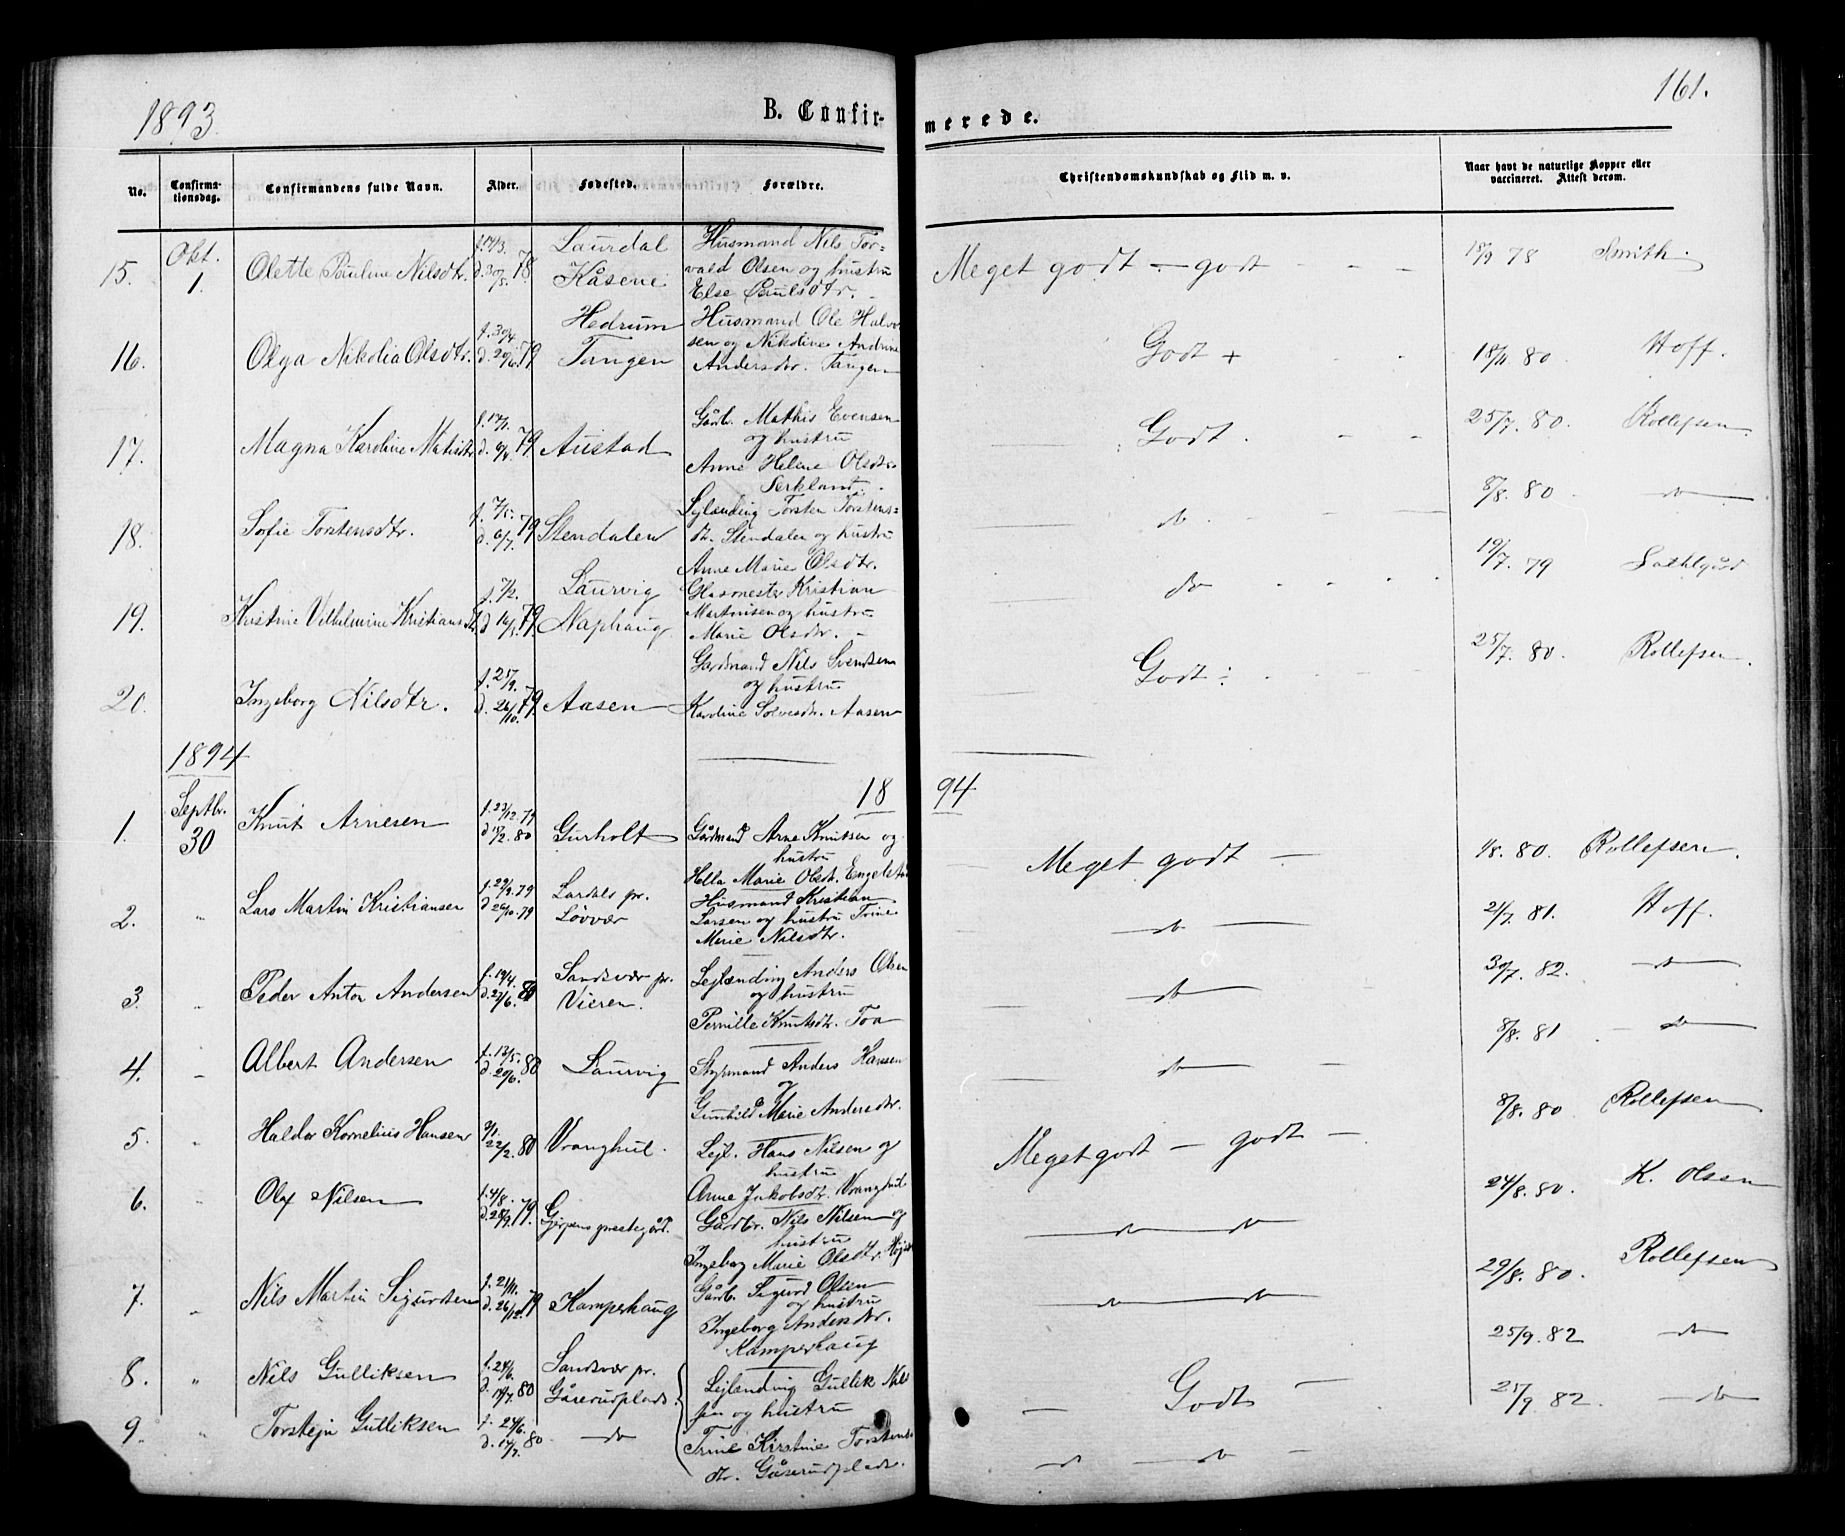 1893.
B. Confir-
merede.
161.
No.
Confirma-
tionsdag.
Confirmandens fulde Navn.
Alder.
Fødested.
Forældre.
Christendomskundskab og Flid m. v.
Naar havt de naturlige Kopper eller
vaccineret. Attest derom.
15. Okt. 1. Olette Pauline Nilsdtr. d. 30/5. 78. Laurdal
Kåsene
Husmand Nils Tor-
vald Olsen og hustru
Else Paulsdtr.
Meget godt - godt - - -
18/9 78 Smith.
16. Olga Nikolia Olsdtr. f. 30/4 d. 29/6. 79 Hedrum
Tangen
Husmand Ole Halv
sen og Nikoline Andrine
Andersdtr. Tangen
Godt + - -
18/11 80. Hoff.
17. Magna Karoline Matisdtr f. 14/1. 79 Austad
Gårdb. Mathis Evensen
og hustru
Anne Helene Olsdtr.
Serkland.
Godt. - -
25/7. 80. Rollefsen.
18. Sofie Torstensdtr. f. 7/5. d. 6/7. 79 Stendalen
Lejlænding Torsten Torstens=
Stendalen og hustru
Anne Marie Olsdtr.
do
8/8. 80. do
19. Kristine Vilhelmine Kristiansdtr. f. 7/2. 79. Laurvig
Naphaug
Glasmester Kristian
Martinsen og hustru
Marie Olsdtr. -
do
19/7. 79
20. Ingeborg Nilsdtr. f. 25/9. d. 26/10. 79. Aasen
Gardmand Nils Svendsen
og hustru
Karoline Solvesdtr. Aasen
Godt ÷
25/7. 80. Rollefsen.
1894
18 94
1. Septbr. 30 Knut Arnesen f. 23/12. 79 d. 15/2. 80 Gurholt
Gårdmand Arne Knutsen og
hustru
Hella Marie Olsdtr.
Meget godt -
1/8. 80. Rollefsen.
2. " Lars Martin Kristiansen f. 29/9. 79 d. 26/10. 79 Lardals pr.
Løvvær
Husmand Kristian
Larsen og hustru Trine
Marie Nilsdtr.
do
21/7. 81. Hoff.
3. " Peder Anton Andersen f. 19/4. d. 27/6. 80 Sandsvær pr.
Vieren.
Lejlænding Anders Olsen
og hustru
Pernille Knutsdtr. Toa
do
30/7. 82. do
4. - Albert Andersen f. 13/5. d. 20/6. 80 Laurvig
Styrmand Anders Hansen
og
Gunhild Marie Andersdtr.
do
8/8. 81. - do
5. " Haldor Kornelius Hansen 9/1. 22/2. 80 Vranghul.
Lejl. Hans Nilsen og
hustru
Anne Jakobsdtr. Vranghul
Meget godt - godt -
8/8. 80. Rollefsen
6. " Olaf Nilsen f. 4/8. d. 28/9. 79. Gjerpens prestegård.
Gårdbr. Nils Nilsen og
hustru
Ingeborg Marie Olsdtr.
do do
24/8. 80. K. Olsen
7. " Nils Martin Sigurdsen f. 21/11. d. 26/12. 79 Kamperhaug
Gårdb. Sigurd Olsen
og hustru
Ingeborg Andersdtr.
Kamperhaug
do do
29/8. 80. Rollefsen
8. " Nils Gulliksen f. 24/6. d. 14/7. 80 Sandsvær pr.
Gåserudplads.
Lejlænding Gullik Nils
sen og hustru
Godt -
25/9. 82 do
9. " Torstejn Gulliksen f. 24/6. d. 14/7. 80 - do
Trine Kirstine Torstens
dtr. Gåserudplads.
do do -
25/9. 82. - do